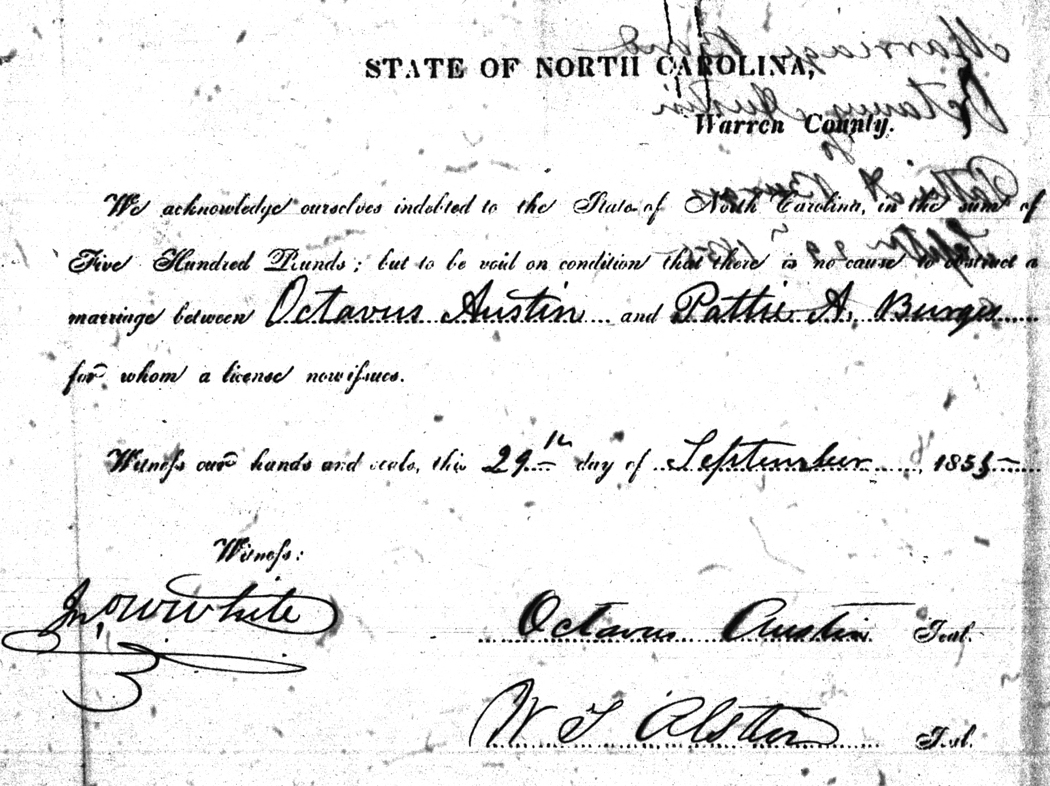 STATE OF NORTH CAROLINA,
Warren County.
We acknowledge ourselves indebted to the State of North Carolina, in the sum of
Five Hundred Pounds; but to be void on condition that there is no cause to obstruct a
marriage between Octavus Austin and Pattie A. Burges
for whom a license now issues.
Witness our hands and seals, this 29th day of September, 1855
Witness:
Jno W White
Octavus Austin Seal.
W T Alston Seal.
Marriage Bond
Octavus Austin
Pattie A Burges